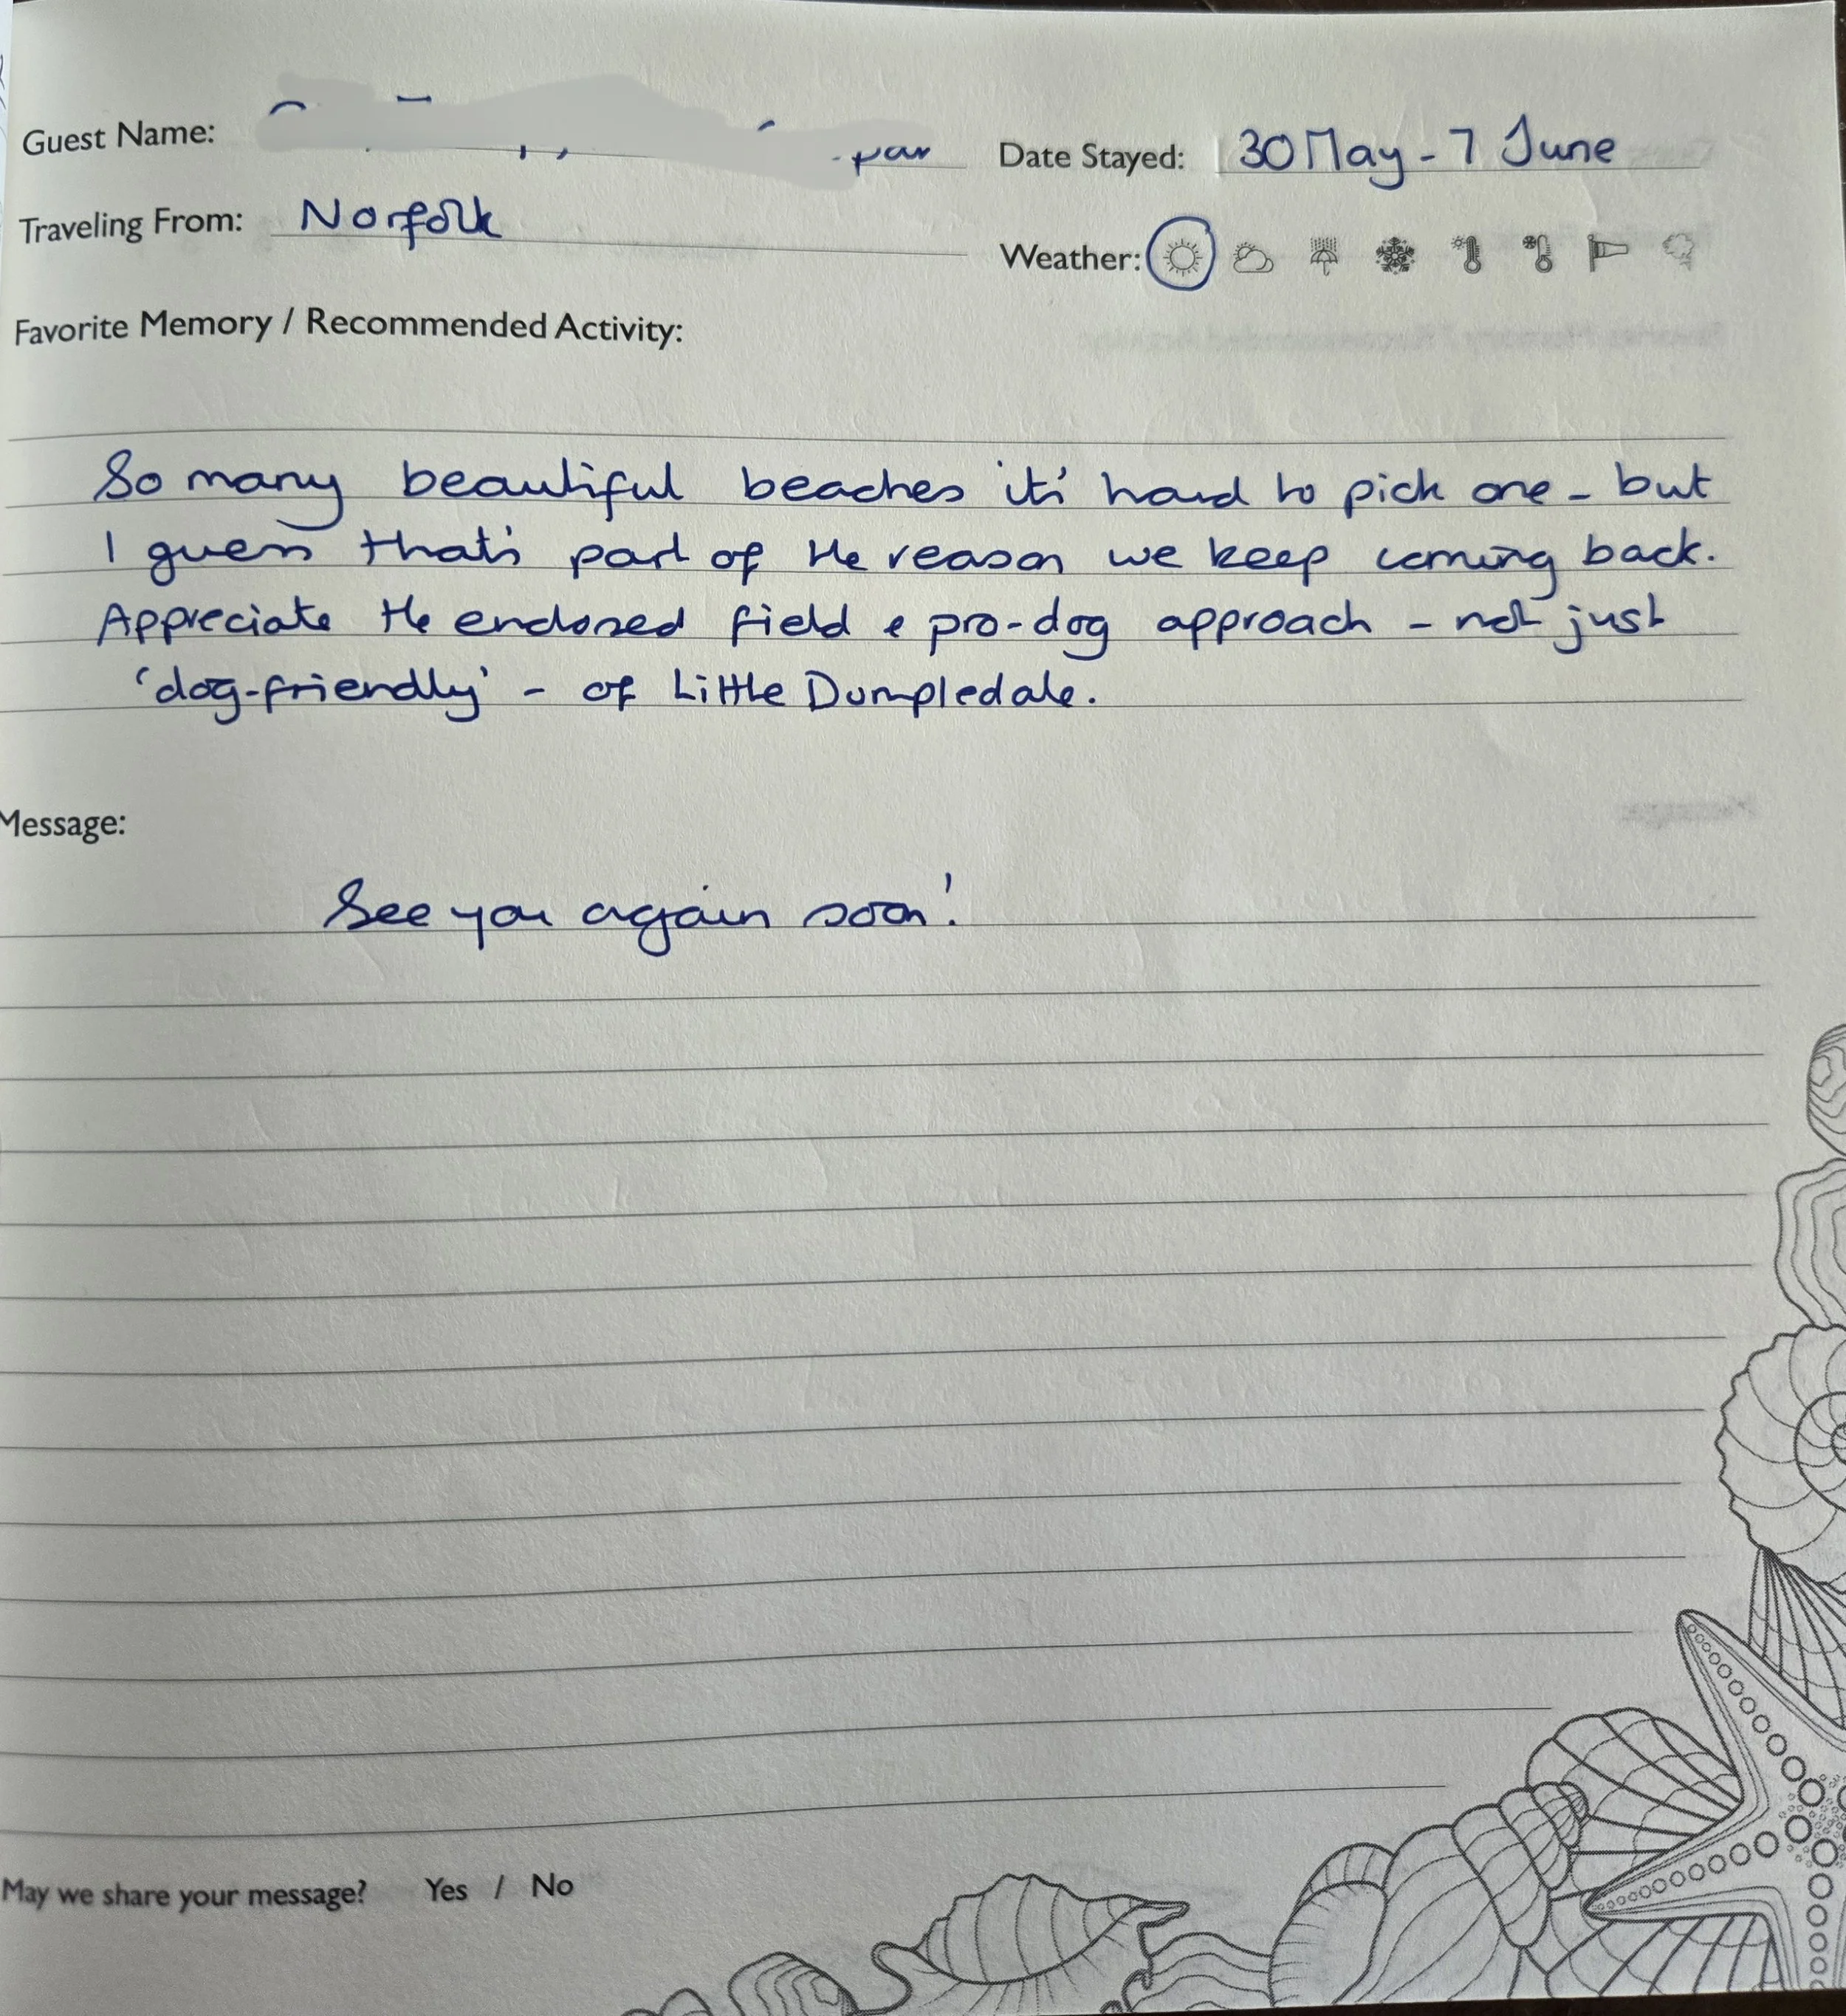 Guest Name:
Date Stayed: 30 May - 7 June
Traveling From: Norfolk
Weather:
Favorite Memory / Recommended Activity:
So many beautiful beaches it's hard to pick one - but
I guess that's part of the reason we keep coming back.
Appreciate the enclosed field & pro-dog approach - not just
'dog-friendly' - of Little Dumpledale.
Message:
See you again soon!
May we share your message? Yes / No